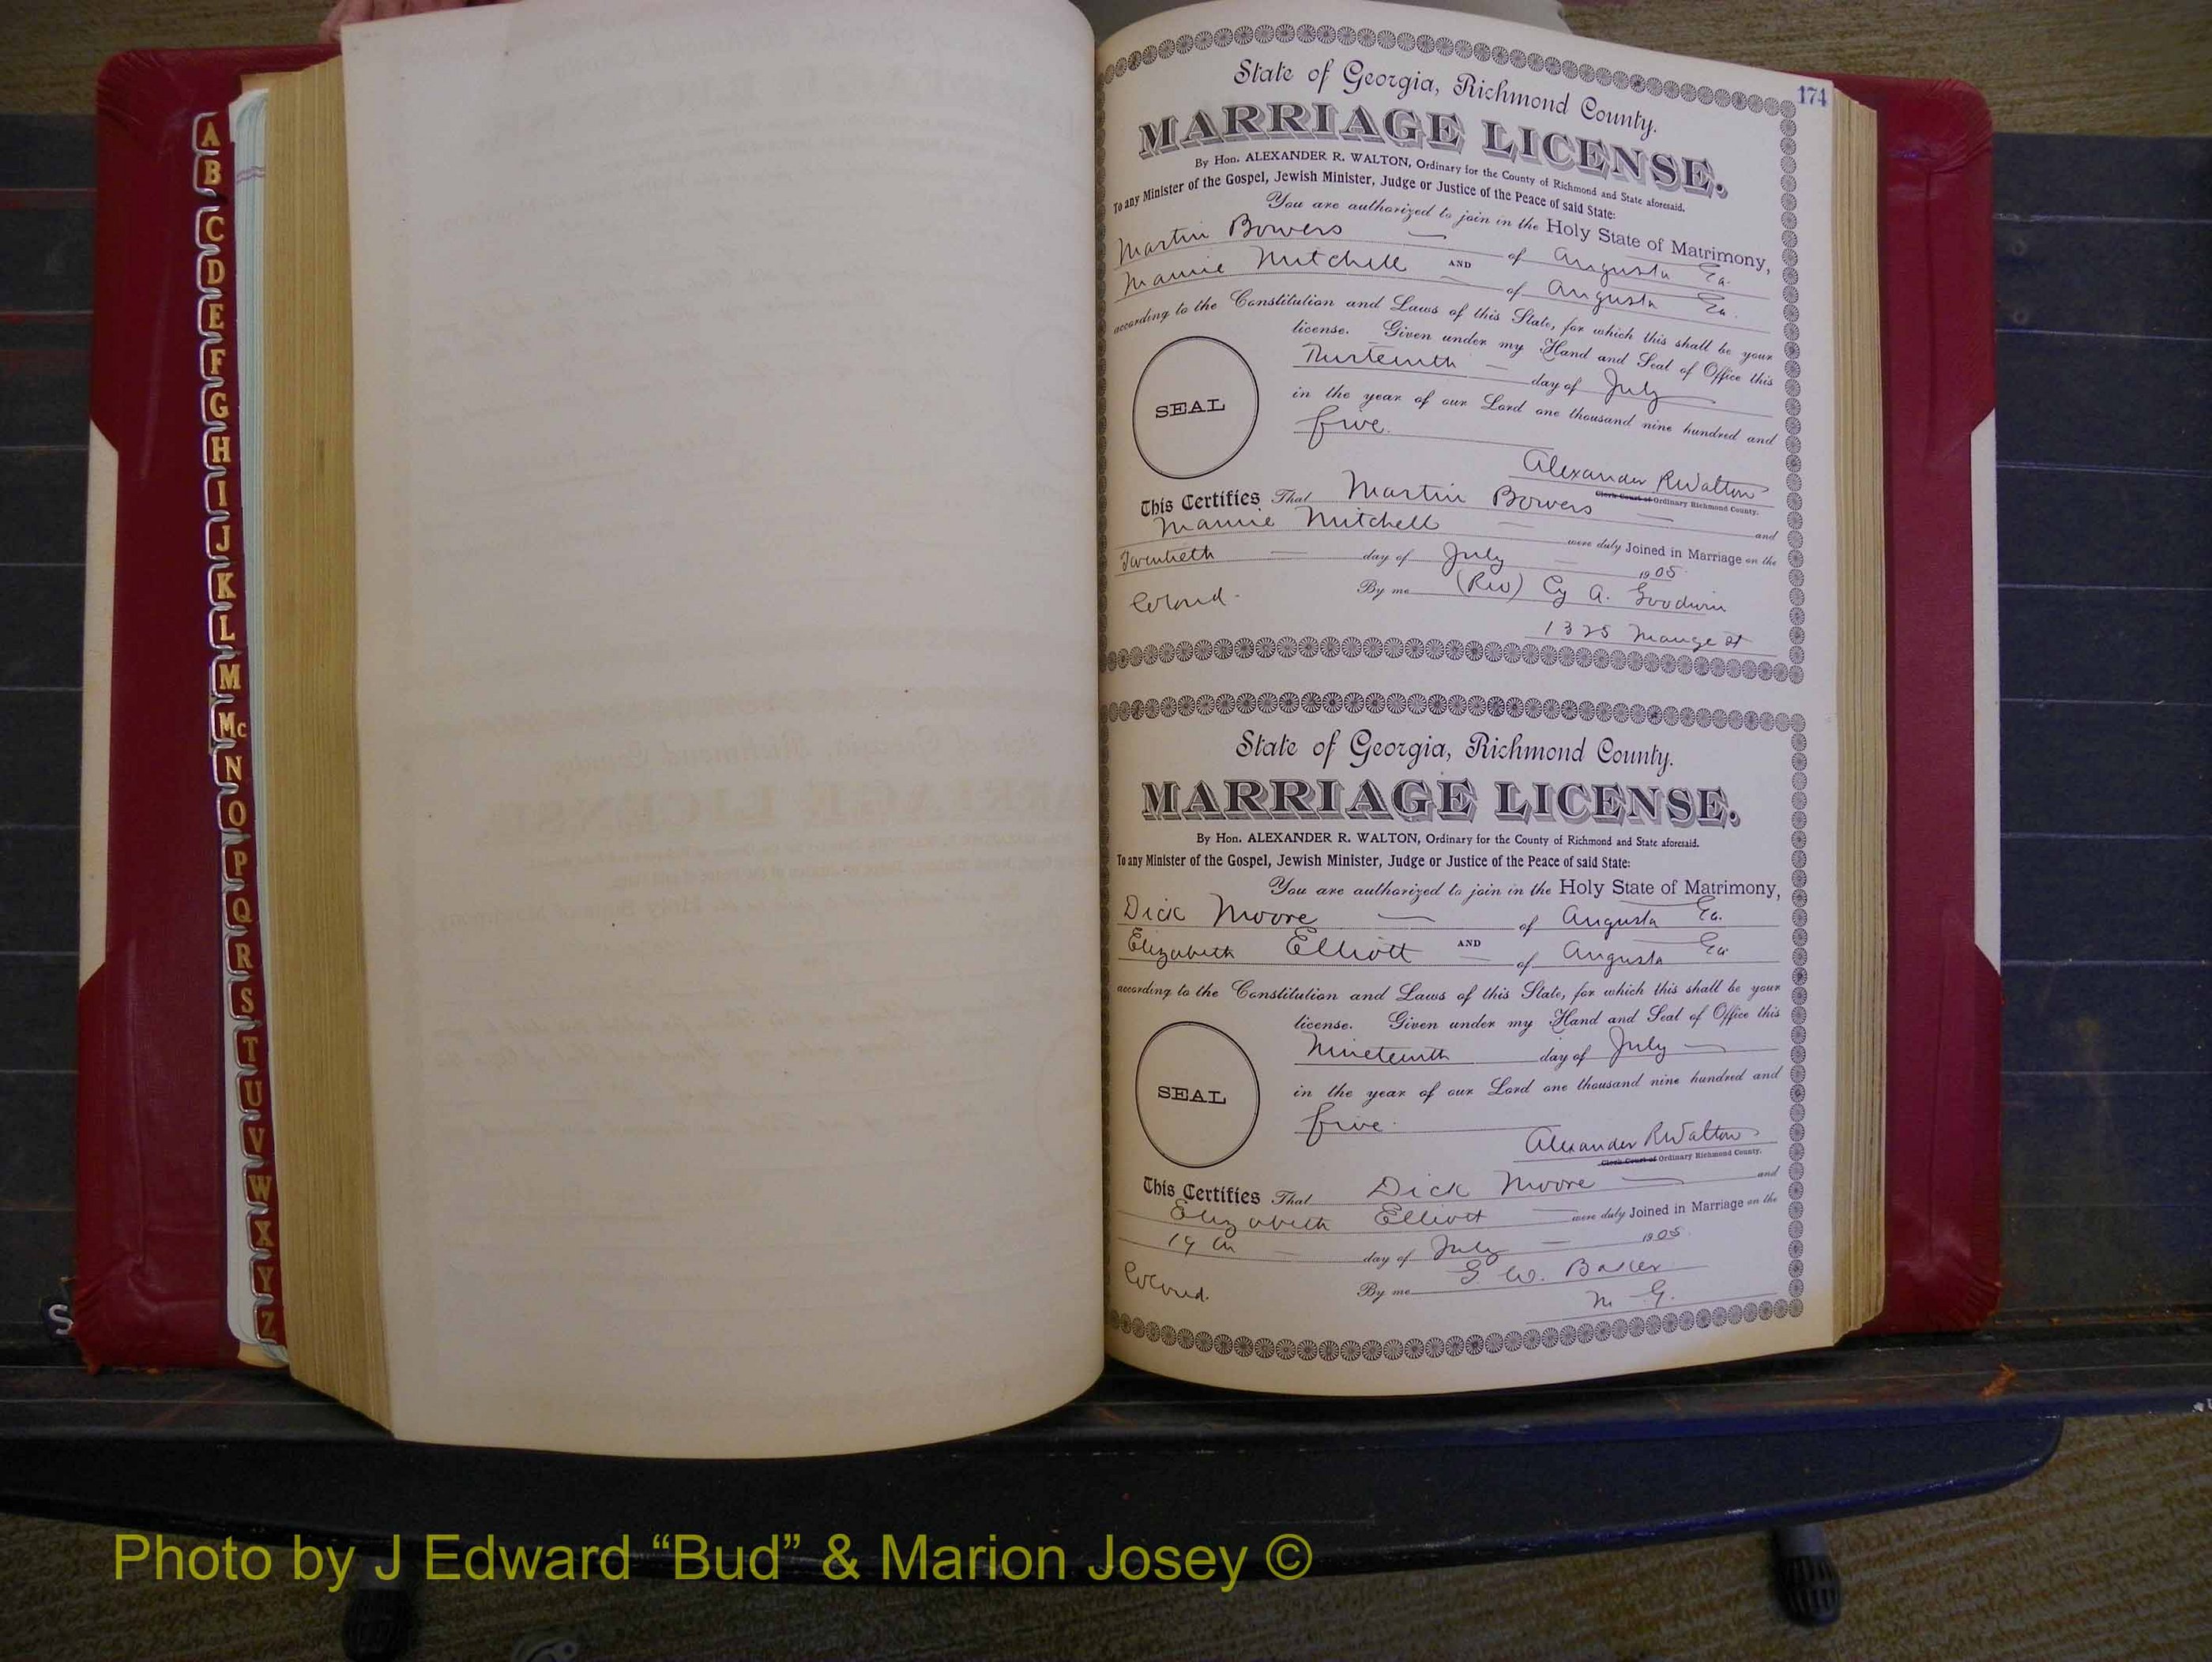 A
B
C
D
E
F
G
H
I
J
K
L
M
Mc
N
O
P
Q
R
S
T
U
V
W
X
Y
Z
S
174
State of Georgia, Richmond County.
MARRIAGE LICENSE.
By Hon. ALEXANDER R. WALTON, Ordinary for the County of Richmond and State aforesaid.
To any Minister of the Gospel, Jewish Minister, Judge or Justice of the Peace of said State:
You are authorized to join in the Holy State of Matrimony,
Martin Bowers of Augusta Ga.
AND
Mamie Mitchell of Augusta Ga.
according to the Constitution and Laws of this State, for which this shall be your
license. Given under my Hand and Seal of Office this
Thirteenth day of July
in the year of our Lord one thousand nine hundred and
five.
SEAL
Alexander R Walton
Clerk Court of Ordinary Richmond County.
This Certifies That Martin Bowers and
Mamie Mitchell were duly Joined in Marriage on the
Twentieth day of July 1905
Colored. By me (Rev) Cy A. Goodwin
1325 St
State of Georgia, Richmond County.
MARRIAGE LICENSE.
By Hon. ALEXANDER R. WALTON, Ordinary for the County of Richmond and State aforesaid.
To any Minister of the Gospel, Jewish Minister, Judge or Justice of the Peace of said State:
You are authorized to join in the Holy State of Matrimony,
Dick Moore of Augusta Ga.
AND
Elizabeth Elliott of Augusta Ga
according to the Constitution and Laws of this State, for which this shall be your
license. Given under my Hand and Seal of Office this
Nineteenth day of July
in the year of our Lord one thousand nine hundred and
five.
SEAL
Alexander R Walton
Clerk Court of Ordinary Richmond County.
This Certifies That Dick Moore and
Elizabeth Elliott were duly Joined in Marriage on the
19 th day of July 1905
Colored. By me G. W. Baker
M G.
Photo by J Edward “Bud” & Marion Josey ©